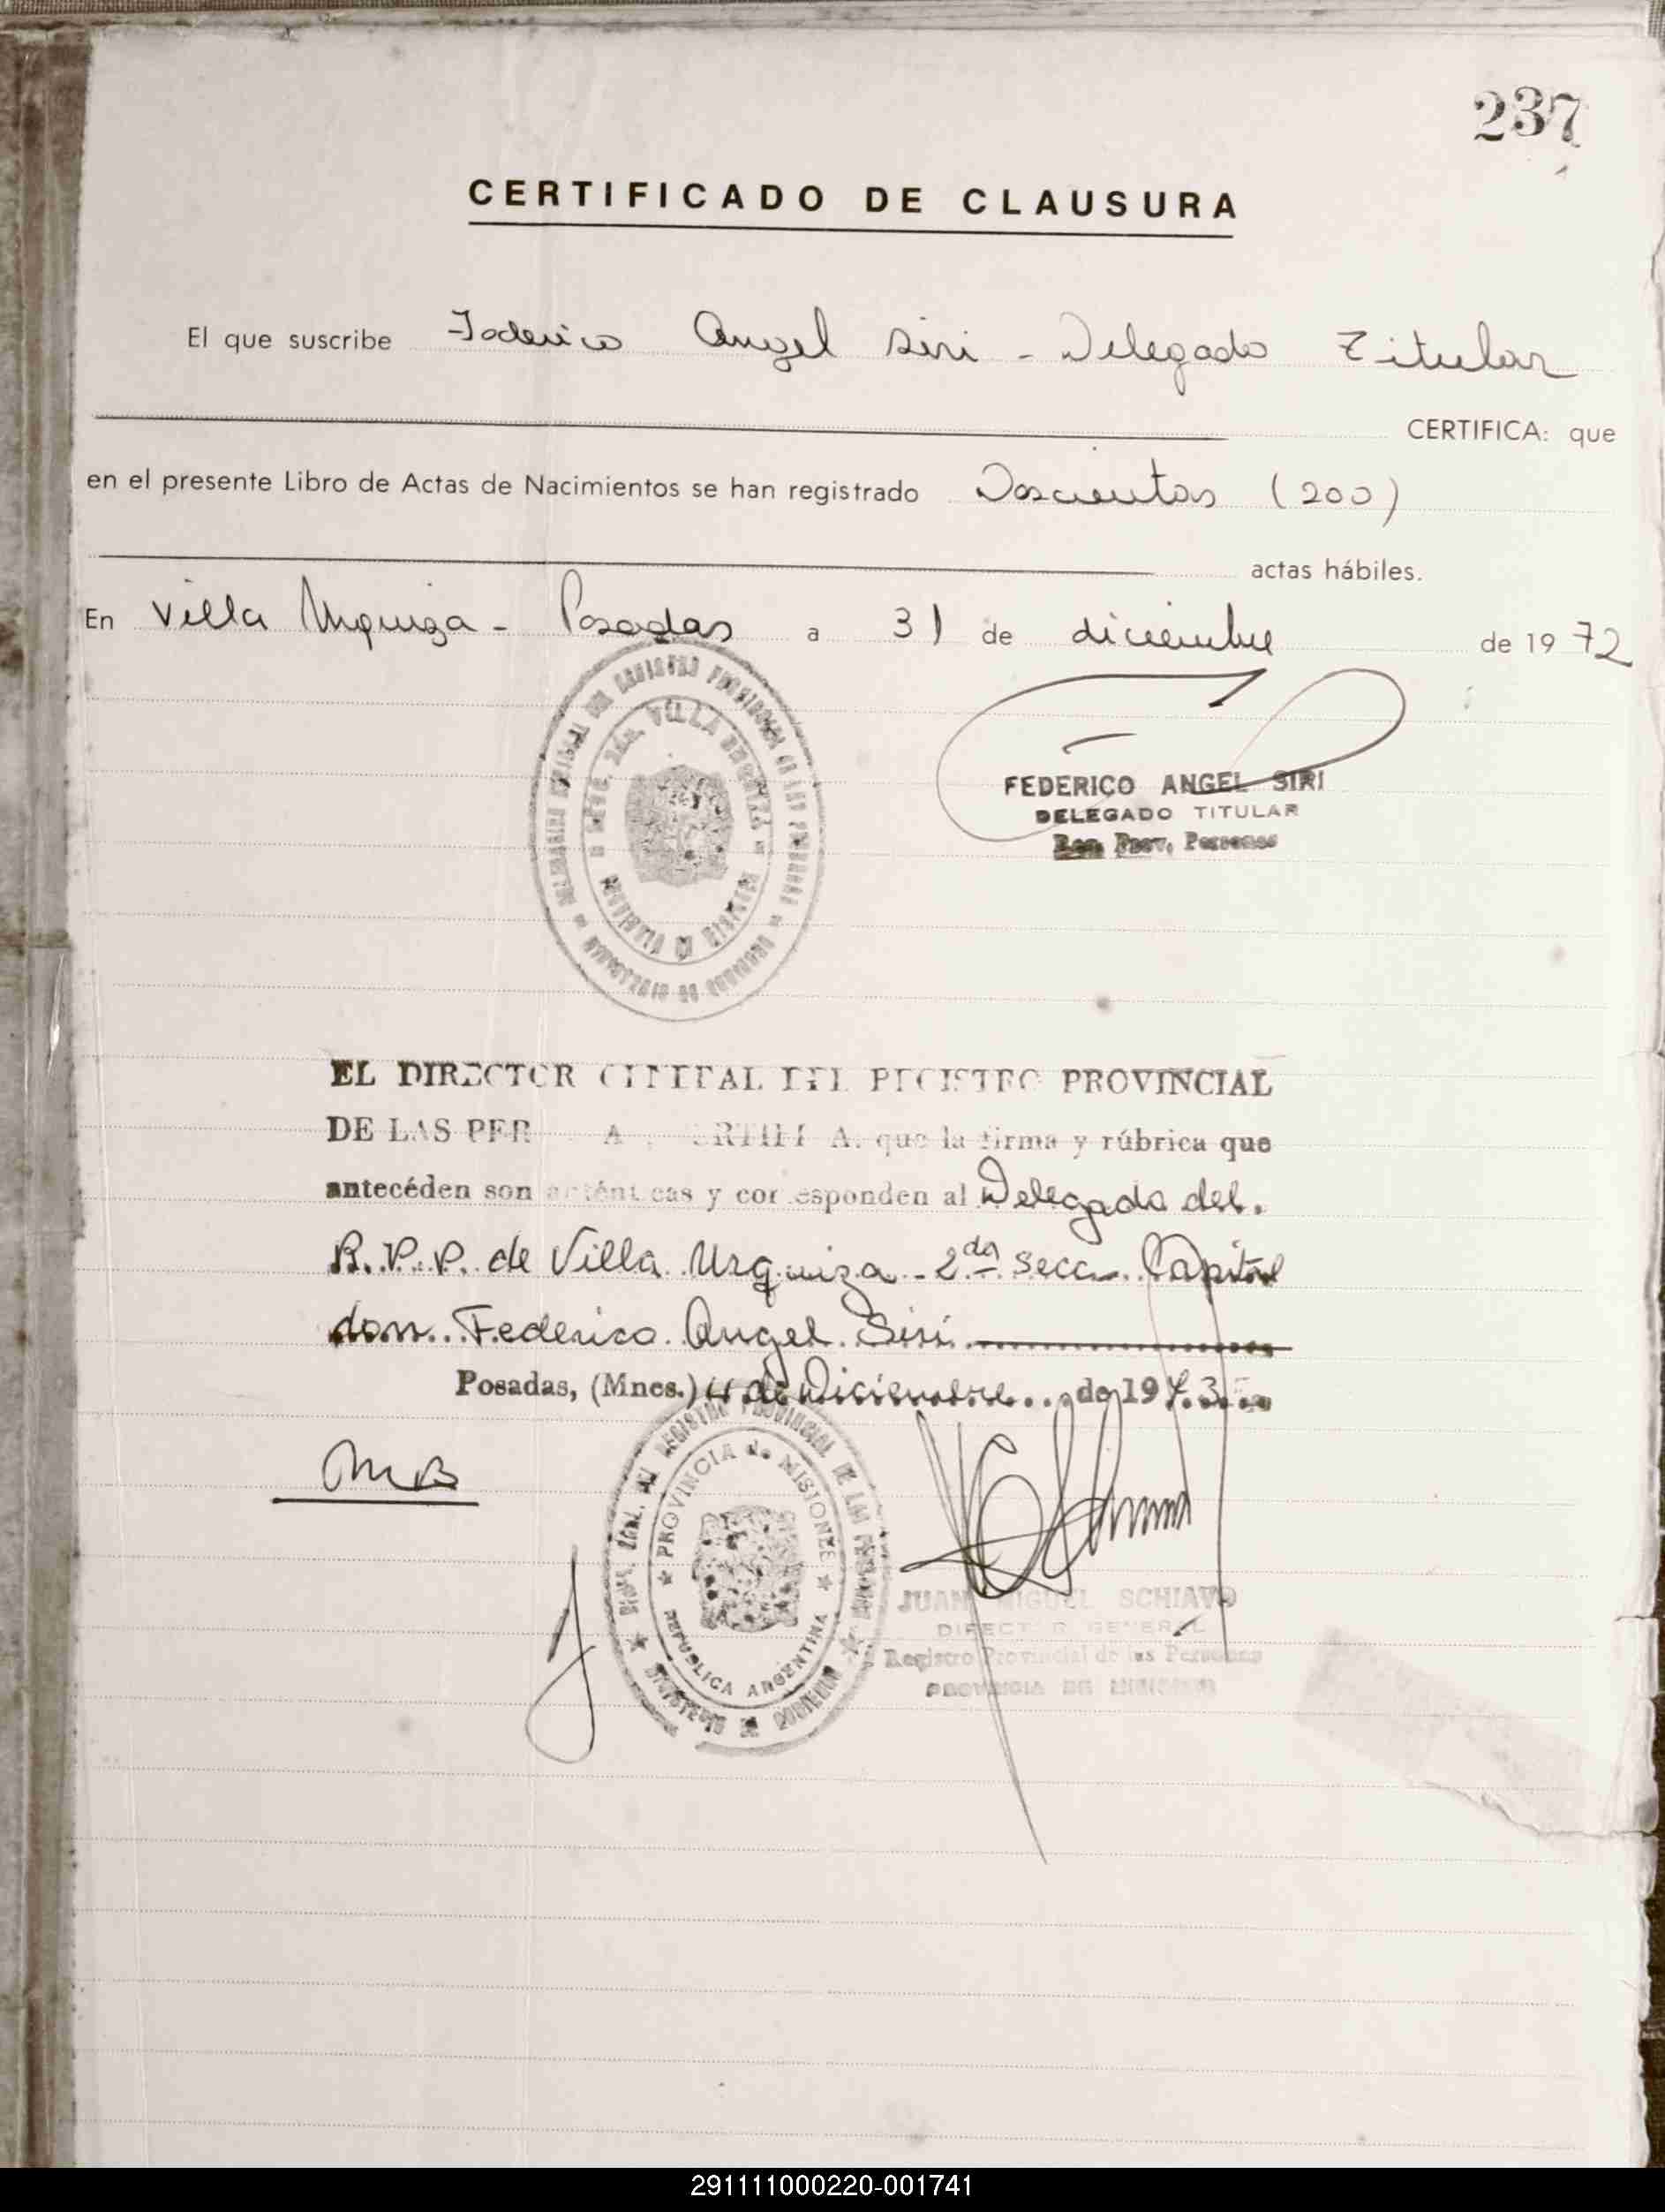 237
CERTIFICADO DE CLAUSURA
El que suscribe Federico Angel Siri - Delegado Titular
CERTIFICA: que
en el presente Libro de Actas de Nacimientos se han registrado Doscientos (200)
actas hábiles.
En Villa Urquiza - Posadas a 31 de diciembre de 1972
FEDERICO ANGEL SIRI
DELEGADO TITULAR
Reg. Prov. Personas
VILLA URQUIZA
PROVINCIA DE MISIONES
EL DIRECTOR GENERAL DEL REGISTRO PROVINCIAL
DE LAS PER que la firma y rúbrica que
antecéden son auténticas y corresponden al Delegado del.
R.P.P. de Villa Urquiza - 2da Secc. Capital
don Federico Angel Siri
Posadas, (Mnes.) de Diciembre de 1973
REGISTRO PROVINCIAL DE LAS PERSONAS
PROVINCIA de MISIONES
REPUBLICA ARGENTINA
MINISTERIO DE GOBIERNO
JUAN MIGUEL SCHIAVO
DIRECTOR GENERAL
Registro Provincial de las Personas
PROVINCIA DE MISIONES
291111000220-001741